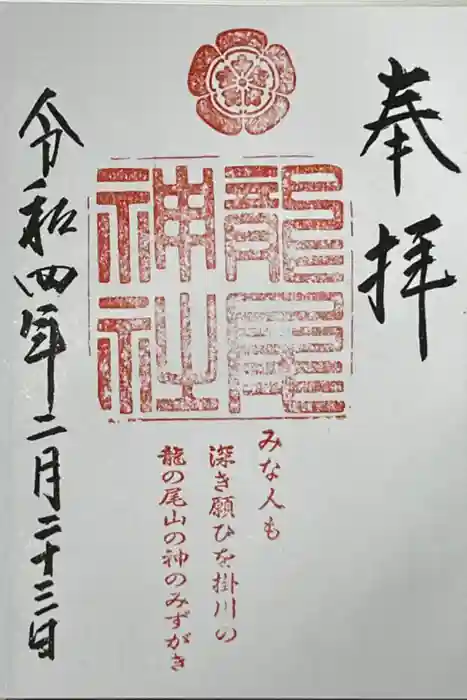 奉拝
龍尾
神社
みな人も
深き願ひを掛川の
龍の尾山の神のみずがき
令和四年二月二十三日